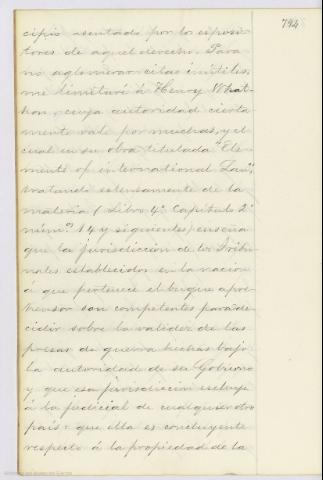 794
cipio asentado por los exposi-
tores de aquel derecho. Para
no aglomerar citas inutiles,
me limitaré á Henry Wheat-
hon, cuya autoridad cierta-
mente vale por muchas, y el
cual en su obra titulada "Ele-
ments of international Law",
tratando estensamente de la
materia (Libro 4º Capítulo 2º
núm.º 14 y siguientes) enseña
que la jurisdiccion de los Tribu-
nales establecidos en la nacion
á que pertenece el buque apre-
hensor son competentes para de-
cidir sobre la validez de las
presas de guerra hechas bajo
la autoridad de su Gobierno
y que esa jurisdiccion escluye
á la judicial de cualquier otro
país: que ella es concluyente
respecto á la propiedad de la